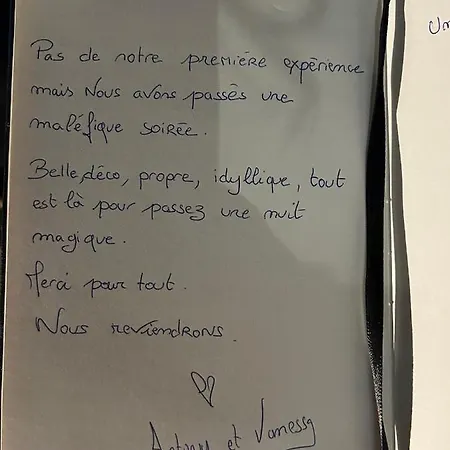 Pas de notre première expérience
mais Nous avons passés une
maléfique soirée.
Belle déco, propre, idyllique, tout
est là pour passez une nuit
magique.
Merci pour tout.
Nous reviendrons.
et Vanessa